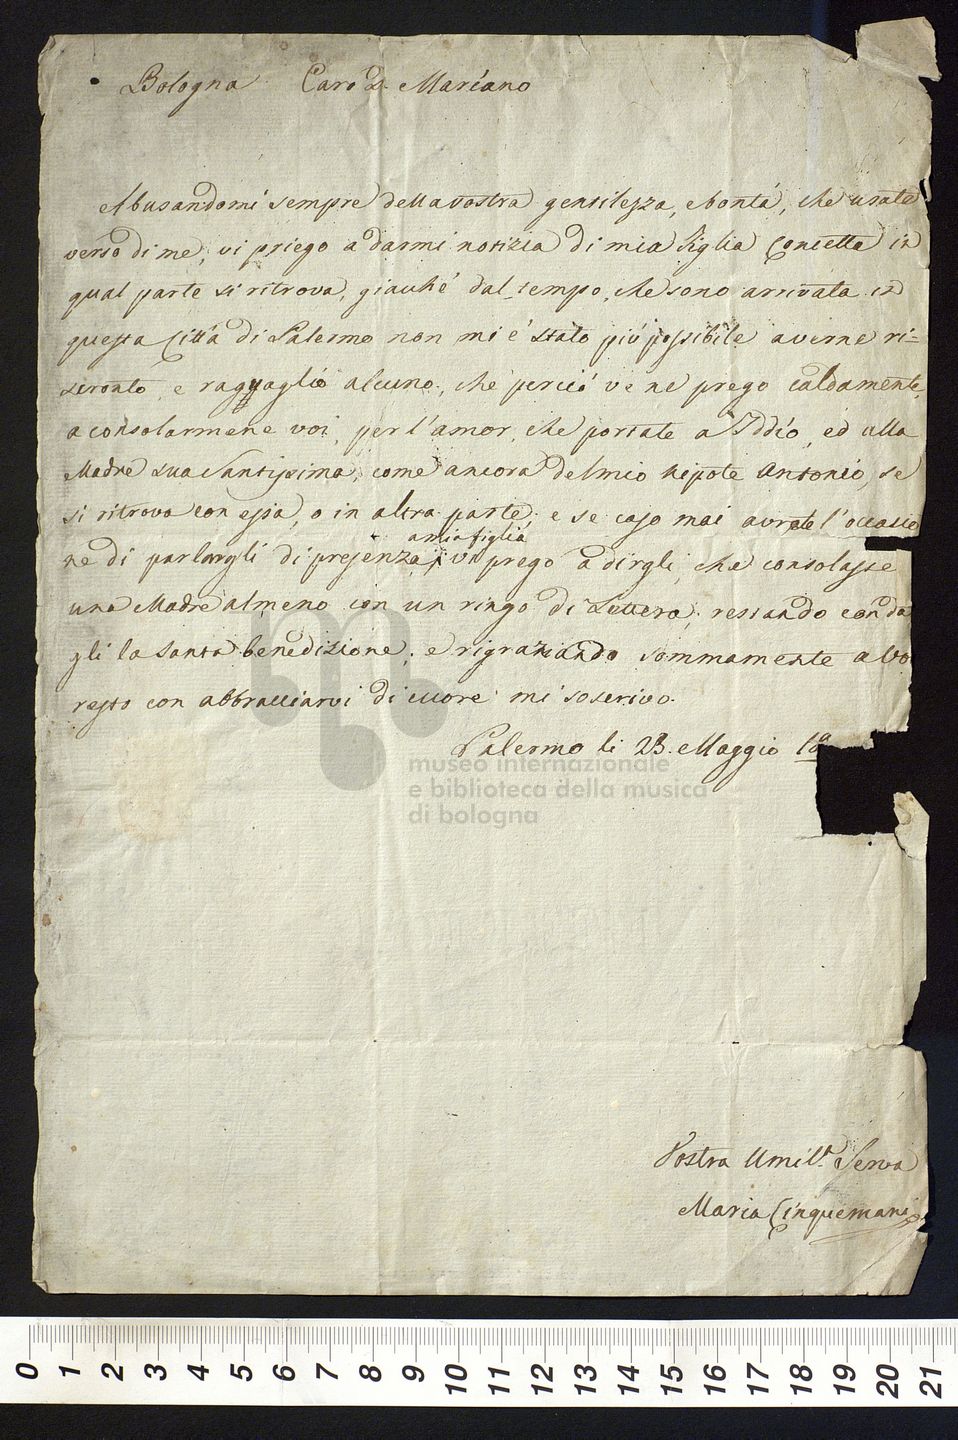 Bologna Caro D. Mariano
Abusandomi sempre della vostra gentilezza, e bontà, che usate
verso di me, vi priego a darmi notizia di mia Figlia Concetta in
qual parte si ritrova, giacchè dal tempo, che sono arrivata in
questa Città di Palermo non mi è stato più possibile averne ri=
scronto, e ragguaglio alcuno, che perciò ve ne prego caldamente,
a consolarmene voi, per l'amor, che portate a Iddio, ed alla
Madre sua Santissima, come ancora del mio nipote Antonio, se
si ritrova con essa, o in altra parte, e se caso mai avrete l'occasio
a mia figlia
ne di parlargli di presenza, vi prego a dirgli, che consolasse
una Madre almeno con un ringo di Lettera, restando con da
gli la santa benedizione, e rigraziando sommamente a voi
resto con abbracciarvi di cuore mi soscrivo.
Palermo li 23. Maggio 18
Vostra Umil.ª Serva
Maria Cinquemani
museo internazionale
e biblioteca della musica
di bologna
0 1 2 3 4 5 6 7 8 9 10 11 12 13 14 15 16 17 18 19 20 21